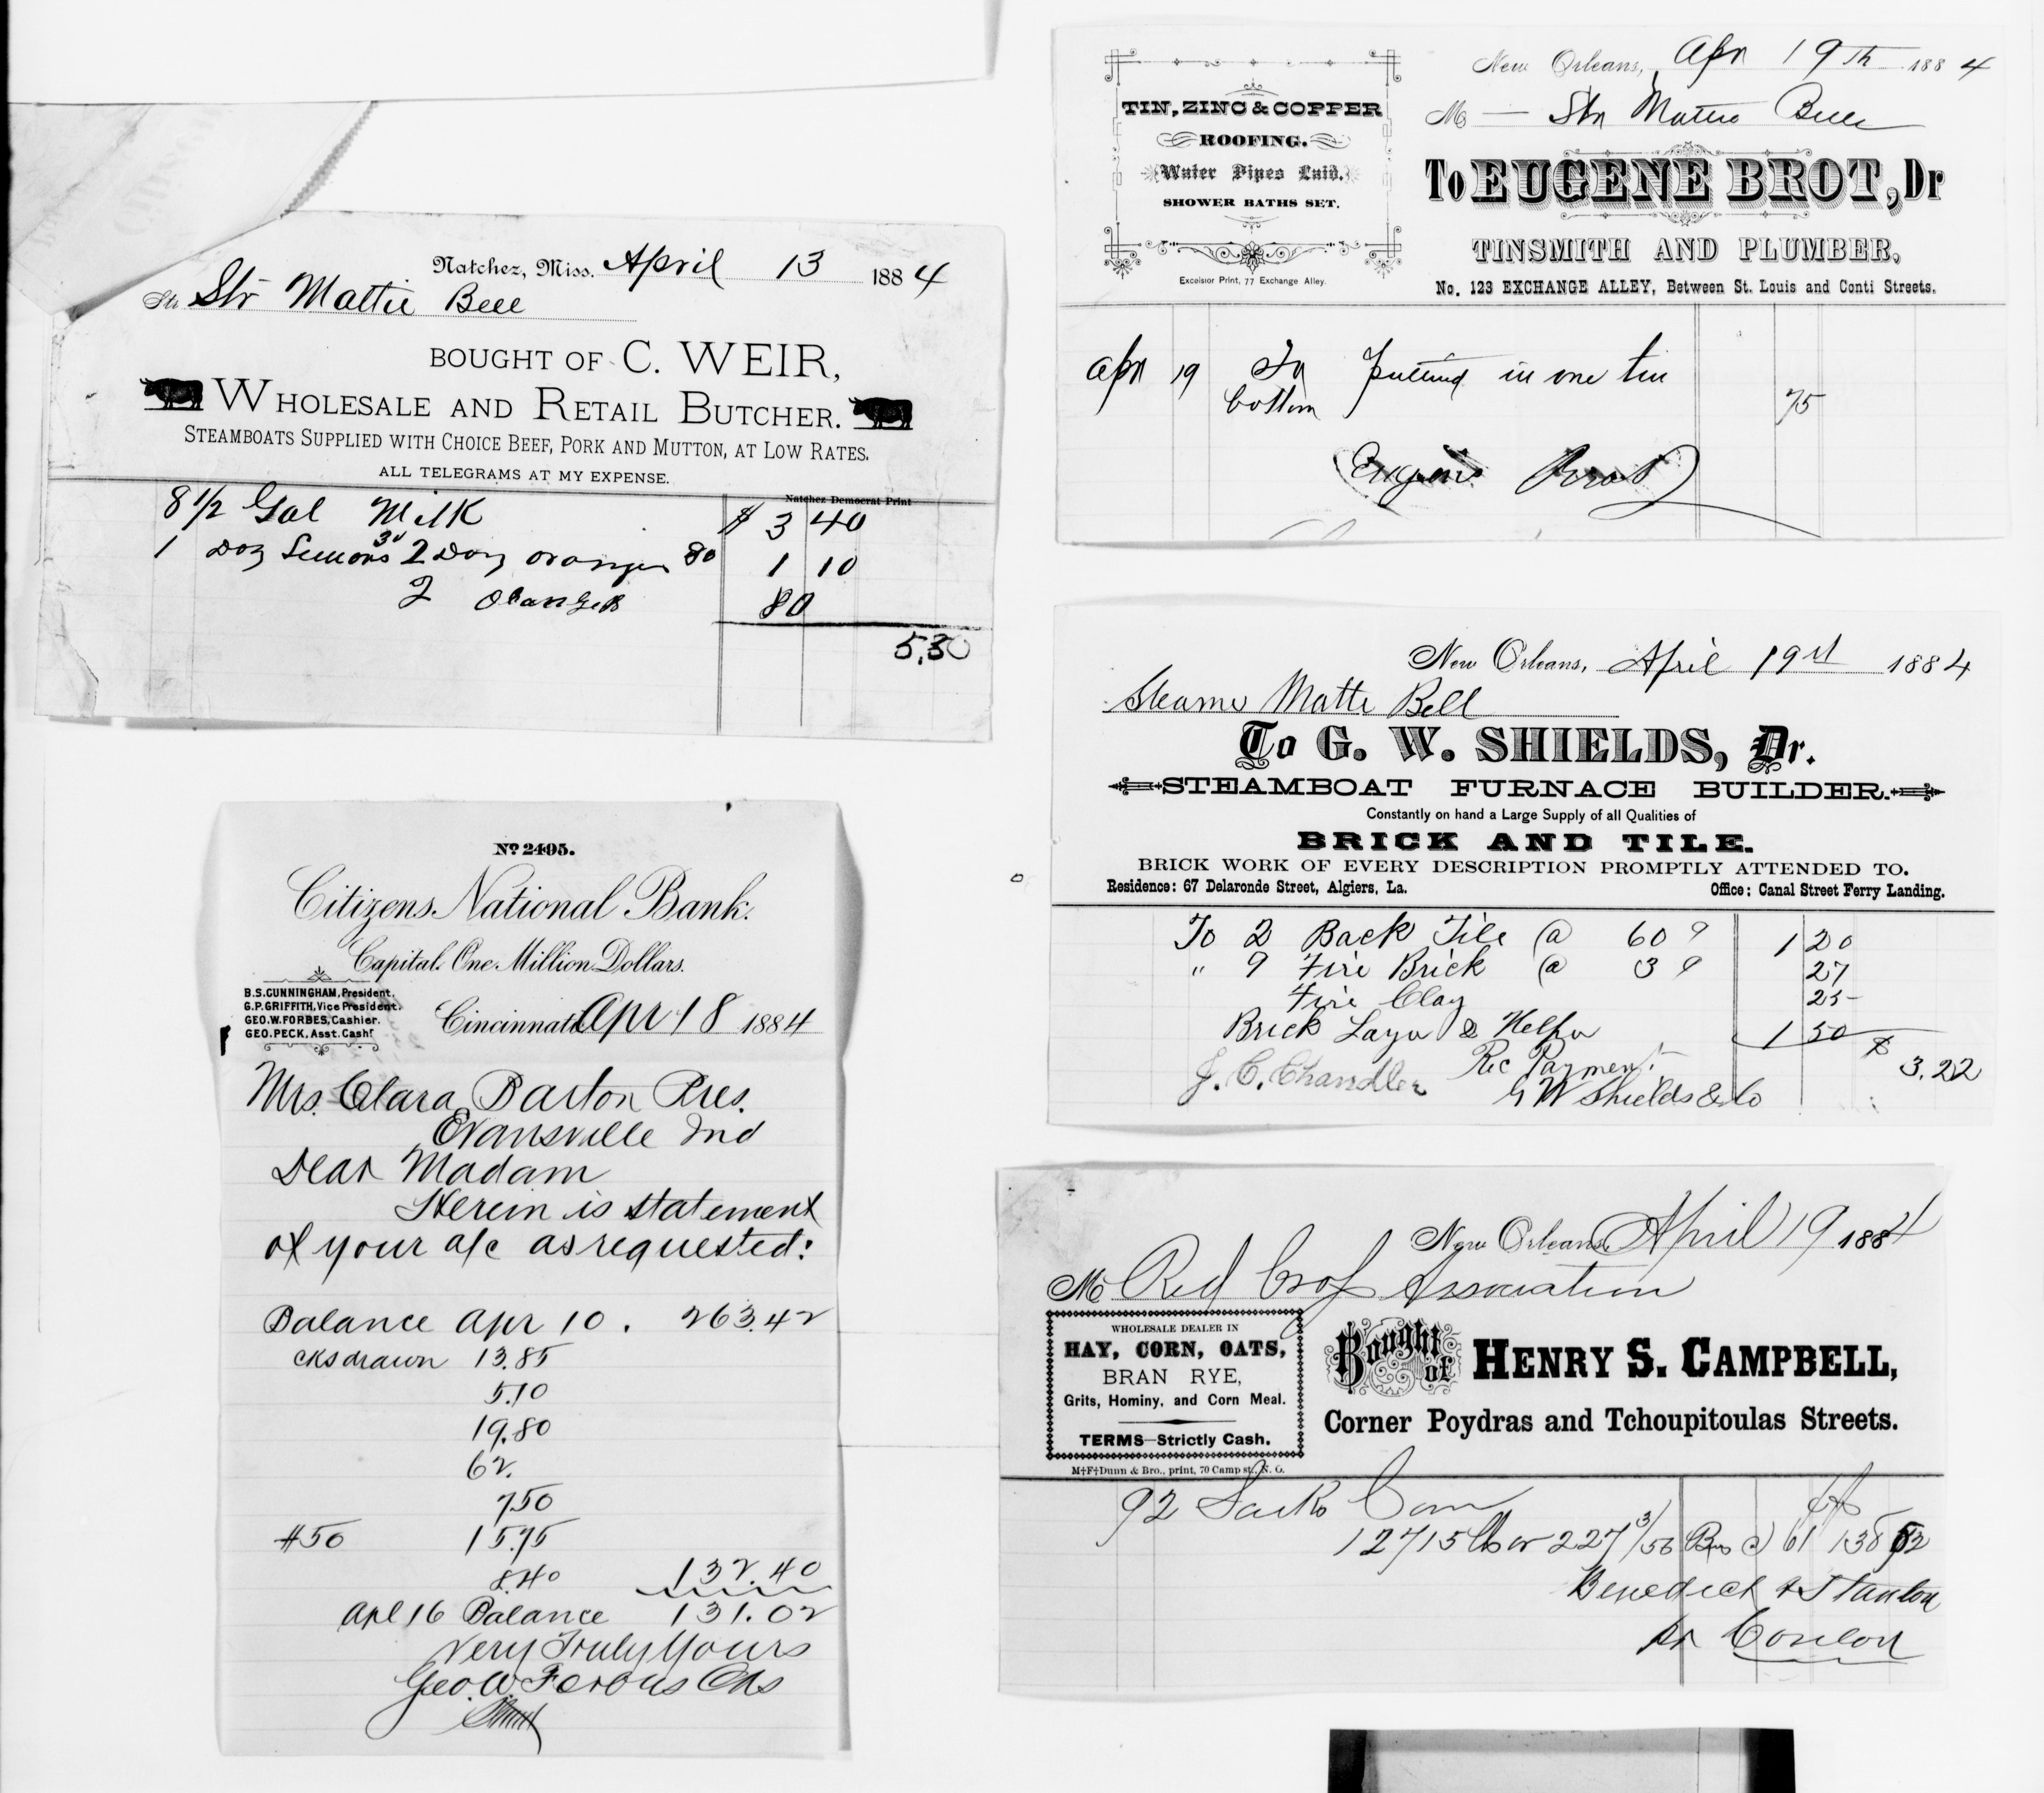 Natchez, Miss. April 13 1884
Str Mattie Bell
BOUGHT OF C. WEIR,
WHOLESALE AND RETAIL BUTCHER.
STEAMBOATS SUPPLIED WITH CHOICE BEEF, PORK AND MUTTON, AT LOW RATES.
ALL TELEGRAMS AT MY EXPENSE.
Natchez Democrat Print
8 1/2 Gal Milk $ 3 40
1 Doz Lemons 30 2 Doz oranges 80 1 10
2 oranges 80
5,30
No 2495.
Citizens National Bank.
Capital One Million Dollars.
B.S.CUNNINGHAM, President.
G.P.GRIFFITH, Vice President.
GEO.W.FORBES, Cashier.
GEO.PECK, Asst. Cashr
Cincinnati Apr 18 1884
Mrs. Clara Barton Pres.
Evansville Ind
Dear Madam
Herein is statement
of your a/c as requested:
Balance Apr 10. 263.42
cks drawn 13.85
5.10
19.80
62.
7.50
#50 15.75
8.40 132.40
Apl 16 Balance 131.02
Very Truly Yours
Geo. W. Forbes Chs
New Orleans, Apr 19th 1884
M — Str Mattie Bell
TIN, ZINC & COPPER
ROOFING.
Water Pipes Laid.
SHOWER BATHS SET.
Excelsior Print, 77 Exchange Alley.
To EUGENE BROT, Dr
TINSMITH AND PLUMBER,
No. 123 EXCHANGE ALLEY, Between St. Louis and Conti Streets.
Apr 19 To putting in one tin
bottom 75
Eugene Brot
New Orleans, April 19st 1884
Steamer Matte Bell
To G. W. SHIELDS, Dr.
STEAMBOAT FURNACE BUILDER.
Constantly on hand a Large Supply of all Qualities of
BRICK AND TILE.
BRICK WORK OF EVERY DESCRIPTION PROMPTLY ATTENDED TO.
Residence: 67 Delaronde Street, Algiers, La. Office: Canal Street Ferry Landing.
To 2 Back Tile @ 60 ¢ 1 20
" 9 Fire Brick @ 3 ¢ 27
Fire Clay 25
Brick Layer & Helper 1 50 $
3.22
J. C. Chandler Rec Payment
G W Shields & Co
New Orleans, April 19 1884
M Red Cross Association
WHOLESALE DEALER IN
HAY, CORN, OATS,
BRAN RYE,
Grits, Hominy, and Corn Meal.
TERMS—Strictly Cash.
M†F†Dunn & Bro., print, 70 Camp st., N. O.
Bought of HENRY S. CAMPBELL,
Corner Poydras and Tchoupitoulas Streets.
92 Sacks Corn
12715 lbs or 227 3/56 Bus @ 61 138 52
Benedict & Stanton